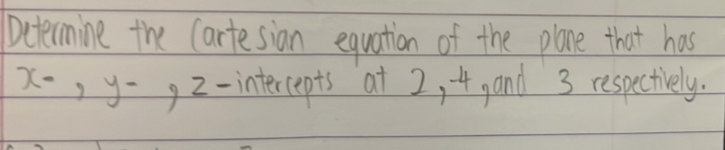 Determine the Cartesian equation of the plane that has
x-, y-, z-intercepts at 2, -4, and 3 respectively.